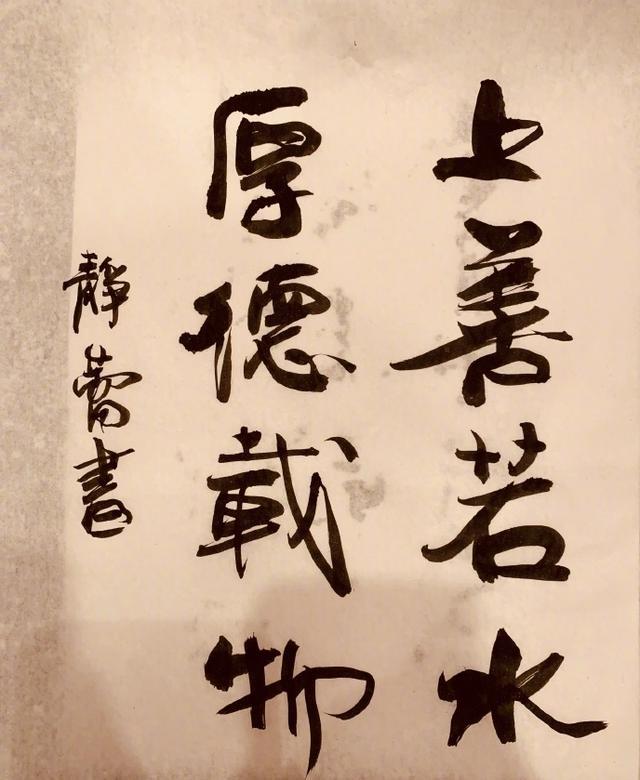 上善若水
厚德載物
靜蕾書